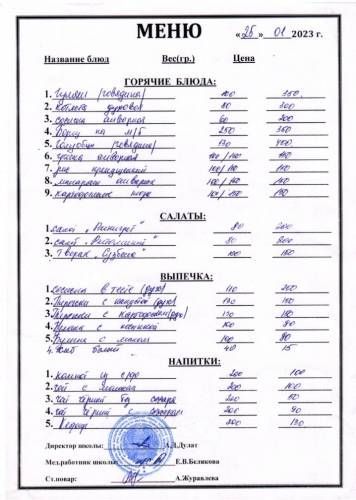 МЕНЮ «25» 01 2023 г.
Название блюд Вес(гр.) Цена
ГОРЯЧИЕ БЛЮДА:
1. Гуляш (говядина) 100 350
2. Котлета куровая 80 300
3. сосиска отварная 60 200
4. Борщ на м/б 250 350
5. Голубцы (говядина) 170 400
6. гречка отварная 100/110
7. рис 100/110
8. макароны отварные 100/110
9. картофельное пюре
САЛАТЫ:
1. салат „Винегрет" 80 200
2. салат 80 200
3. Творог 100 180
ВЫПЕЧКА:
1. сосиска в тесте (дух) 110 200
2. Пирожки с капустой (дух) 130 150
3. Пирожки с картофелем (дух) 130 150
4. Булочка с 100 90
5. Булочка с маком 100 90
4. Хлеб белый 40 15
НАПИТКИ:
1. компот из с/фр 200 100
2. чай с лимоном 200 100
3. чай чёрный без сахара 200
4. чай чёрный с сахаром 200 90
5. 200 130
Директор школы: А.Д.Дулат
Мед.работник школы Е.В.Белякова
Ст.повар: А.Журавлева